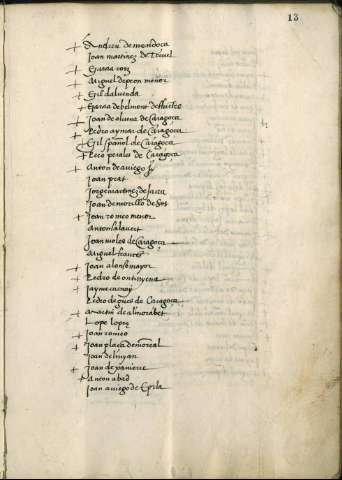 13
+ Andreu de mendoça
Joan martinez de Teruel
+ Garcia
+ Miguel de peon menor
+ Gil dalueda
+ Garcia de belmonte
+ Joan de alueua de Caragoça
+ Pedro aymar de Caragoça
+ Gil español de Caragoça
+ Peco perales de Caragoça
+ Anton de auiego
Joan prat
Jorge martinez de
Joan de morillo de sos
+ Joan romeo menor
Anton salauert
Joan moles de Caragoça
Miguel frances
+ Joan alonso mayor
+ Pedro de ontinyena
+ Jayme
Pedro de gues de Caragoça
+ Martin de almorabet
Lope lopez
+ Joan romeo
+ Joan plaça de monreal
Joan de linyan
+ Joan de xanierre
+ Anton abed
Joan auiego de Epila